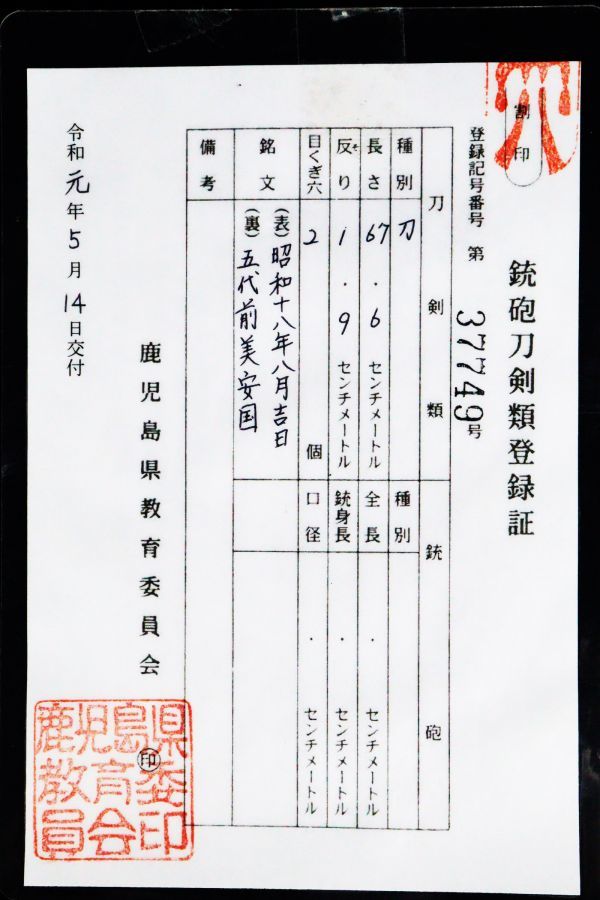 割印
銃砲刀剣類登録証
登録記号番号 第 37749号
刀剣類
種別 刀
長さ 67.6 センチメートル
反り 1.9 センチメートル
そ
目くぎ穴 2 個
銘文 (表) 昭和十八年八月吉日
(裏) 五代前美安国
銃砲
種別
全長 . センチメートル
銃身長 . センチメートル
口径 . センチメートル
備考
鹿児島県教育委員会 印
令和元年5月14日交付
鹿児島県教育委員会印